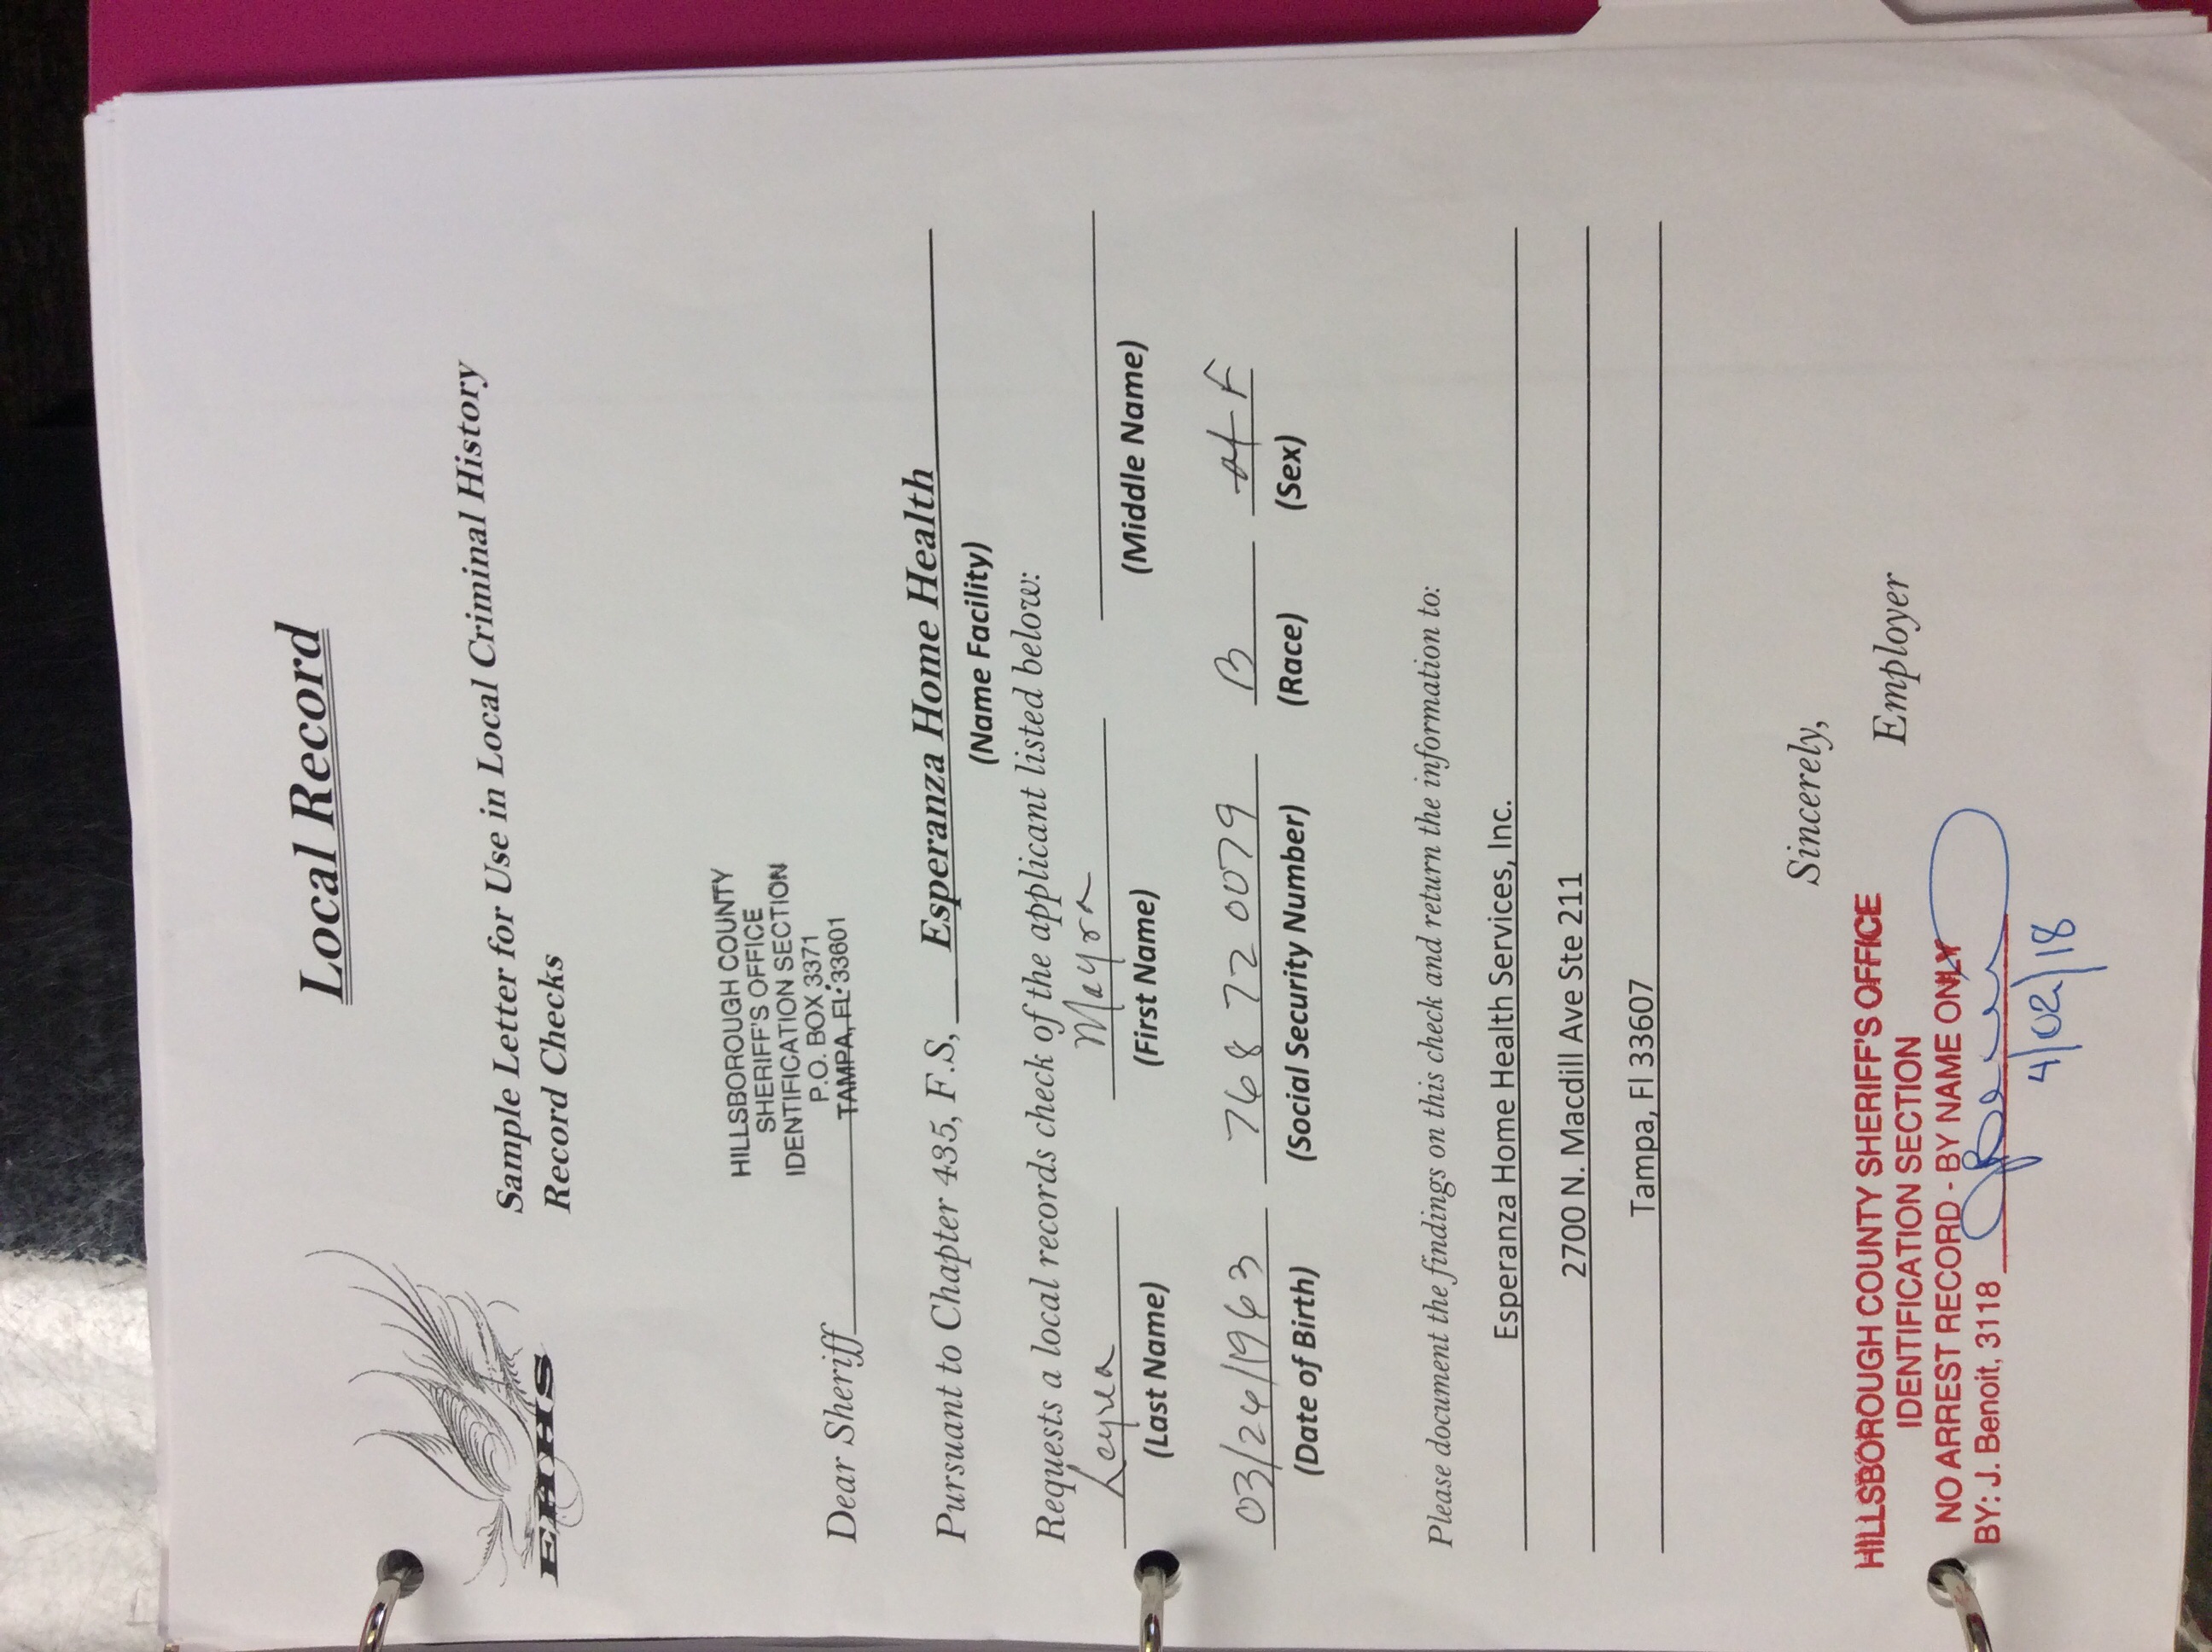 Local Record
Sample Letter for Use in Local Criminal History
Record Checks
HILLSBOROUGH COUNTY
SHERIFF'S OFFICE
IDENTIFICATION SECTION
P.O. BOX 3371
TAMPA, FL. 33601
Dear Sheriff
Pursuant to Chapter 435, F.S, Esperanza Home Health
(Name Facility)
Requests a local records check of the applicant listed below:
Mayra
(Last Name) (First Name) (Middle Name)
768 72 0079 B F
(Date of Birth) (Social Security Number) (Race) (Sex)
Please document the findings on this check and return the information to:
Esperanza Home Health Services, Inc.
2700 N. Macdill Ave Ste 211
Tampa, Fl 33607
Sincerely,
Employer
HILLSBOROUGH COUNTY SHERIFF'S OFFICE
IDENTIFICATION SECTION
NO ARREST RECORD - BY NAME ONLY
BY: J. Benoit, 3118
4/02/18